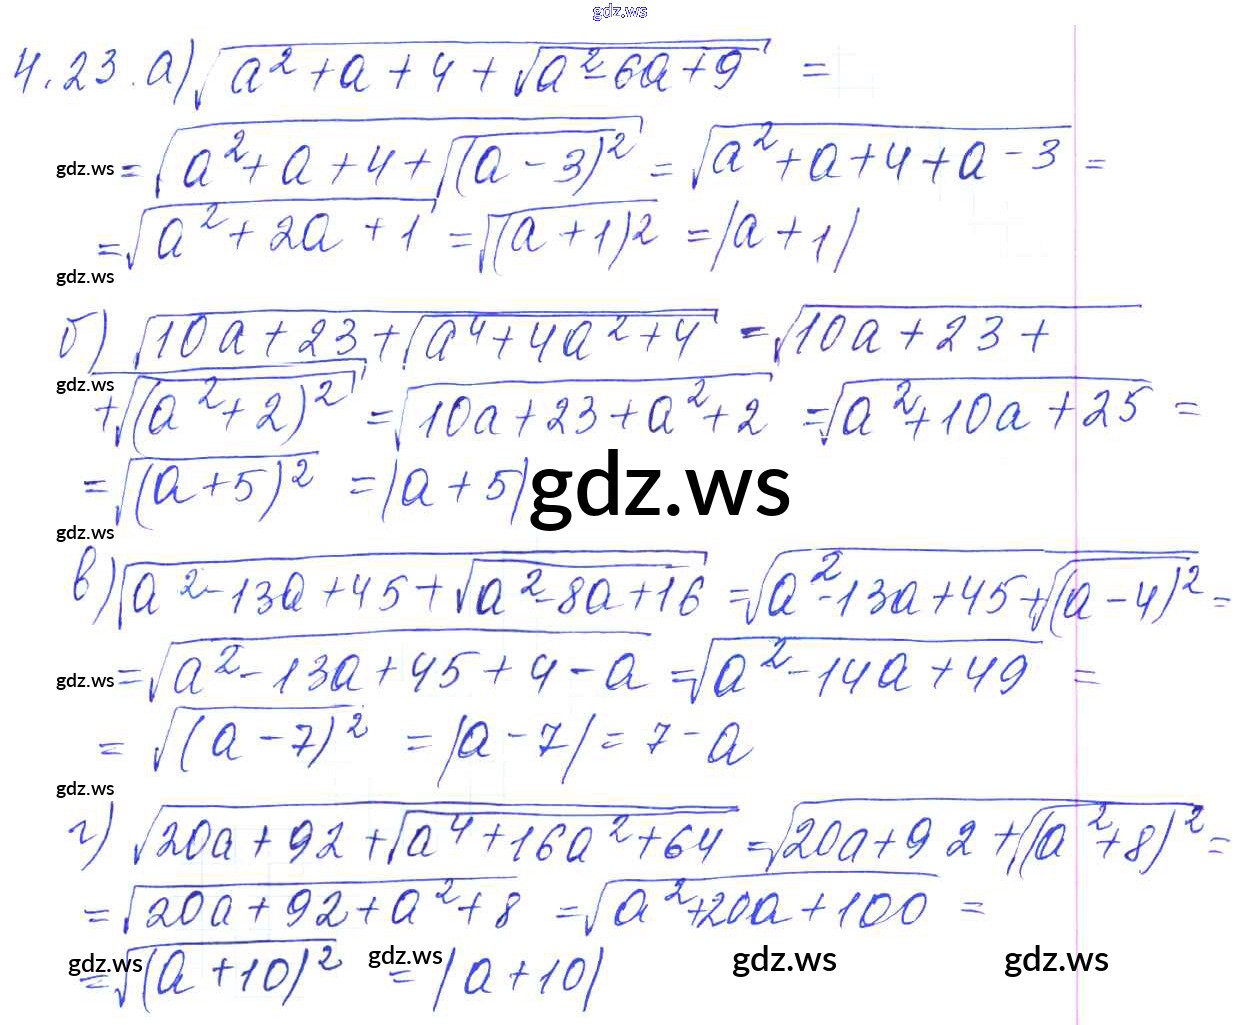 gdz.ws
4.23. а) √(a² + a + 4 + √(a² - 6a + 9)) =
gdz.ws = √(a² + a + 4 + √((a - 3)²)) = √(a² + a + 4 + a - 3) =
= √(a² + 2a + 1) = √((a + 1)²) = |a + 1|
gdz.ws
б) √(10a + 23 + √(a⁴ + 4a² + 4)) = √(10a + 23 +
gdz.ws
+ √((a² + 2)²)) = √(10a + 23 + a² + 2) = √(a² + 10a + 25) =
= √((a + 5)²) = |a + 5| gdz.ws
gdz.ws
в) √(a² - 13a + 45 + √(a² - 8a + 16)) = √(a² - 13a + 45 + √((a - 4)²)) =
gdz.ws = √(a² - 13a + 45 + 4 - a) = √(a² - 14a + 49) =
= √((a - 7)²) = |a - 7| = 7 - a
gdz.ws
г) √(20a + 92 + √(a⁴ + 16a² + 64)) = √(20a + 92 + √((a² + 8)²)) =
= √(20a + 92 + a² + 8) = √(a² + 20a + 100) =
gdz.ws gdz.ws gdz.ws gdz.ws
= √((a + 10)²) = |a + 10|